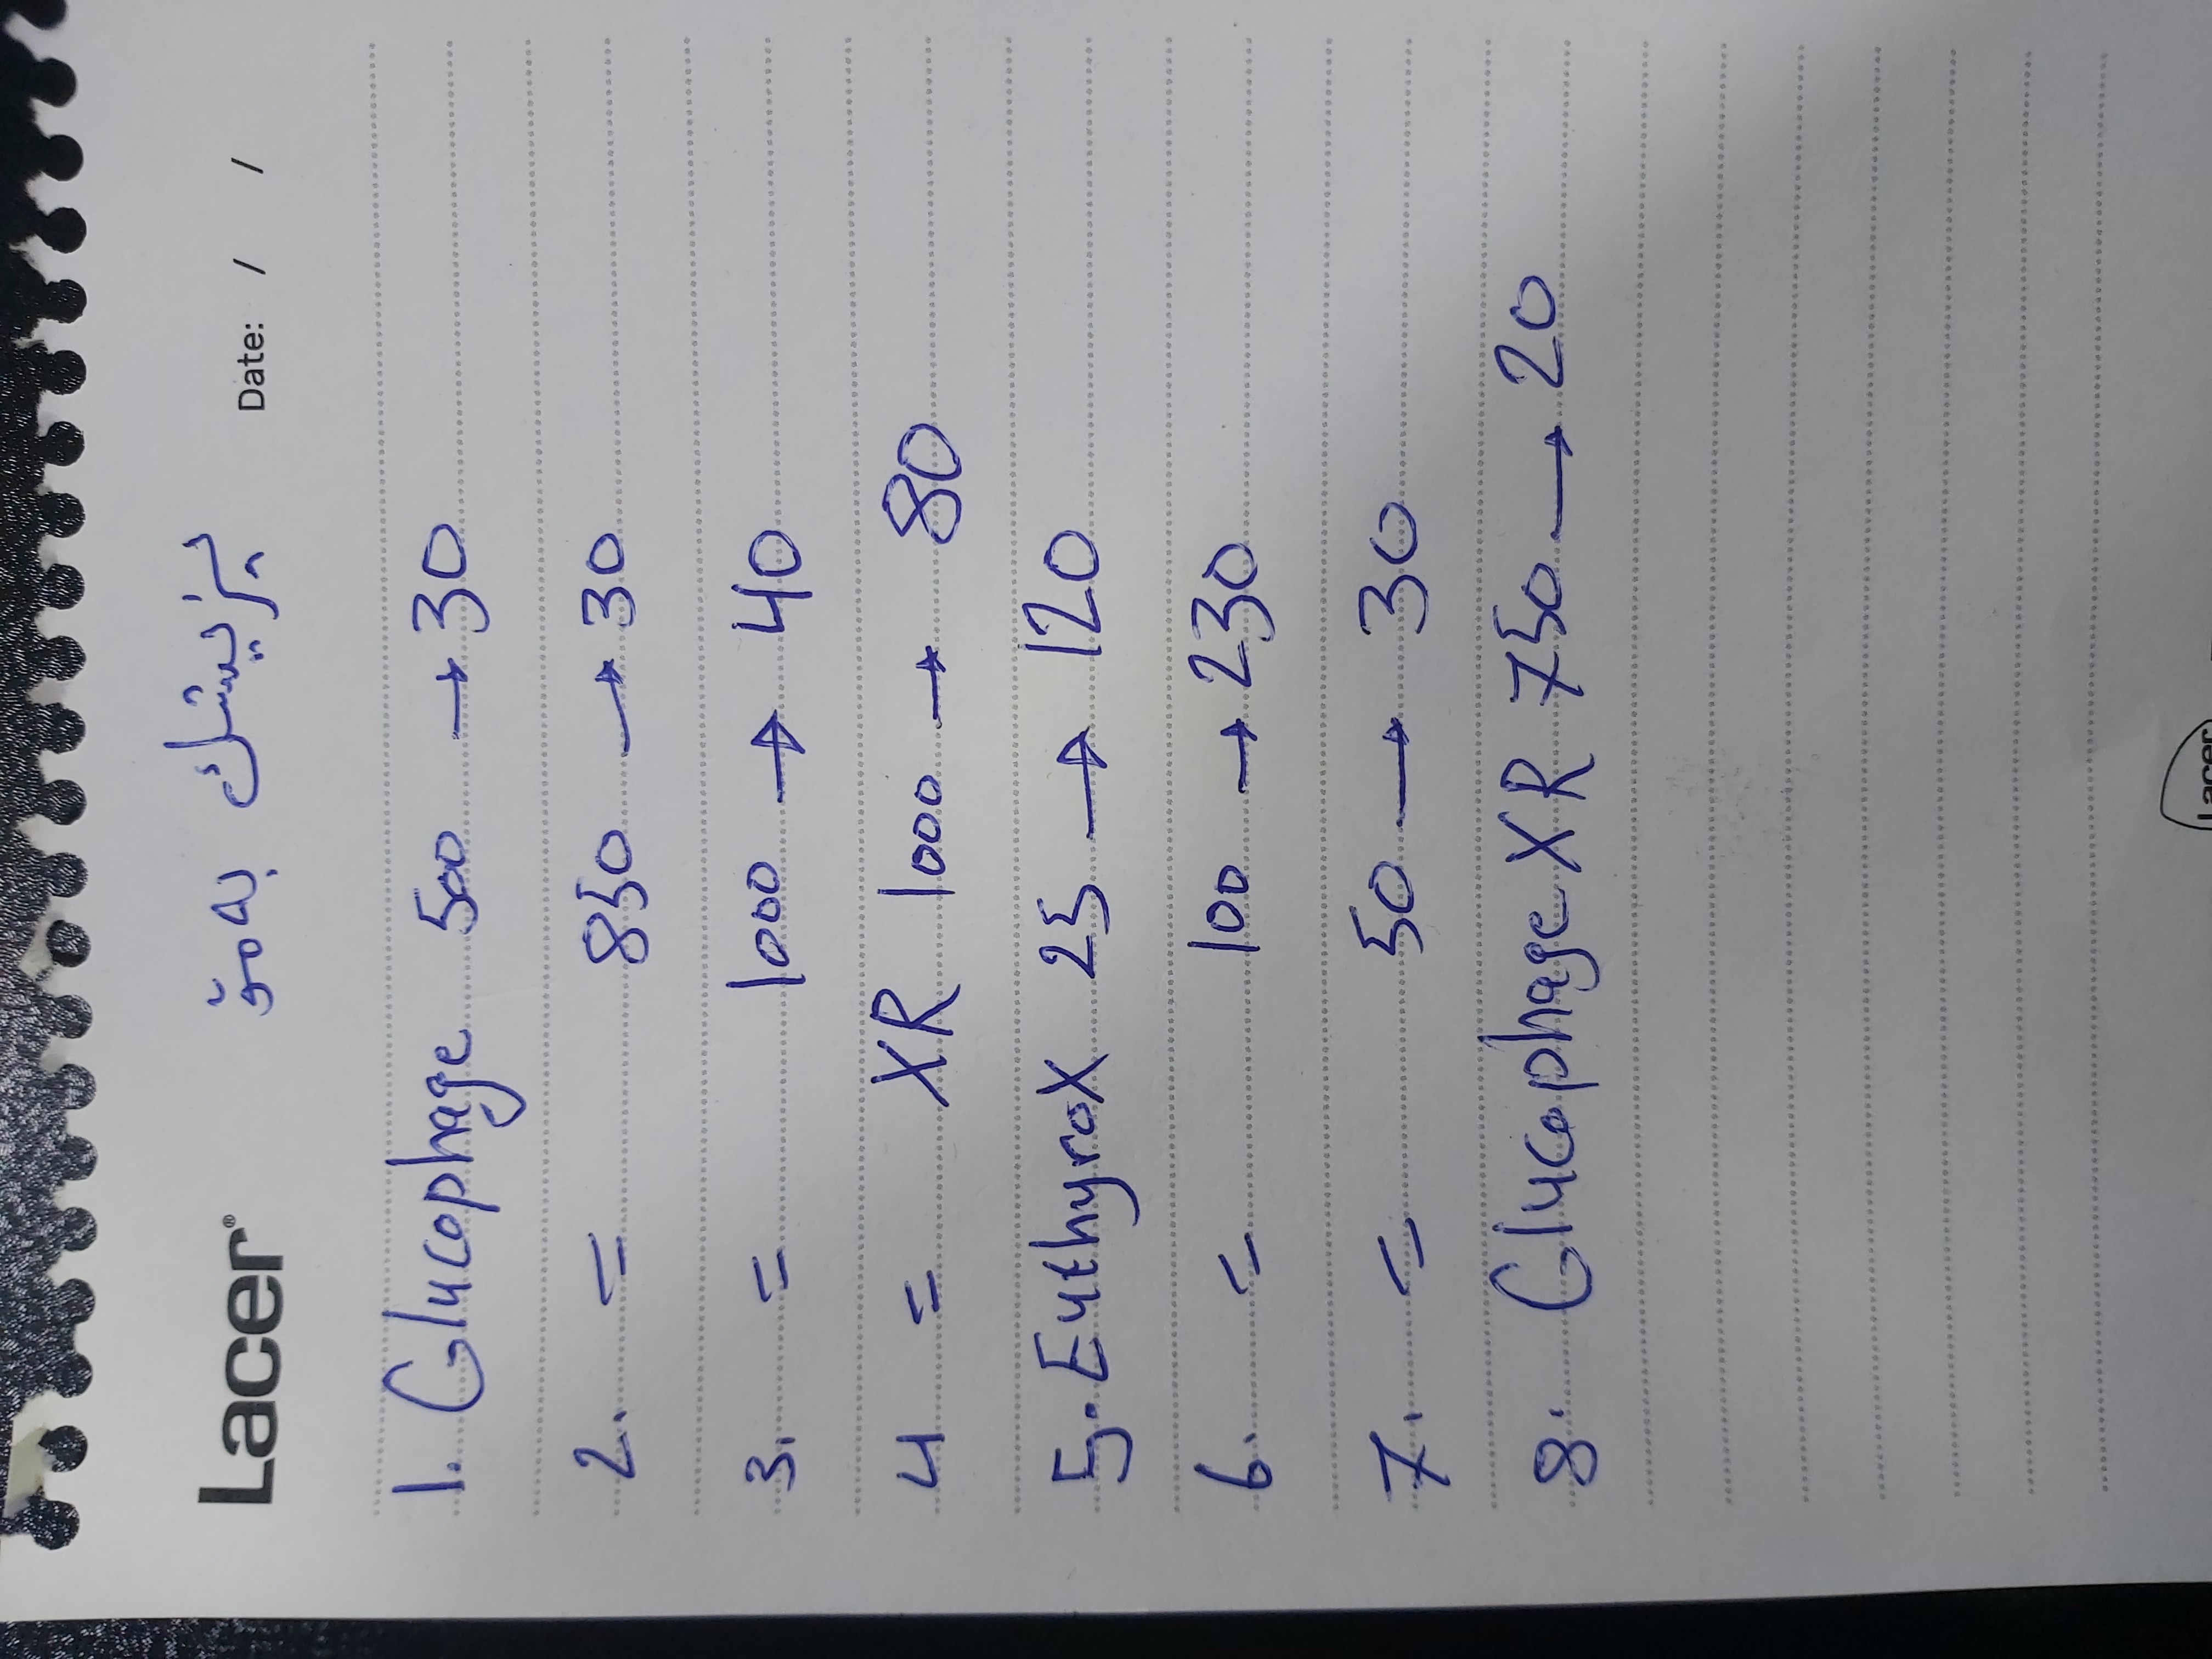 Lacer® پزیشک بەمۆ Date: / /
1. Glucophage 500 → 30
2. = 850 → 30
3. = 1000 → 40
4 = XR 1000 → 80
5. Euthyrox 25 → 120
6. = 100 → 230
7. = 50 → 30
8. Glucophage XR 750 → 20
Lacer